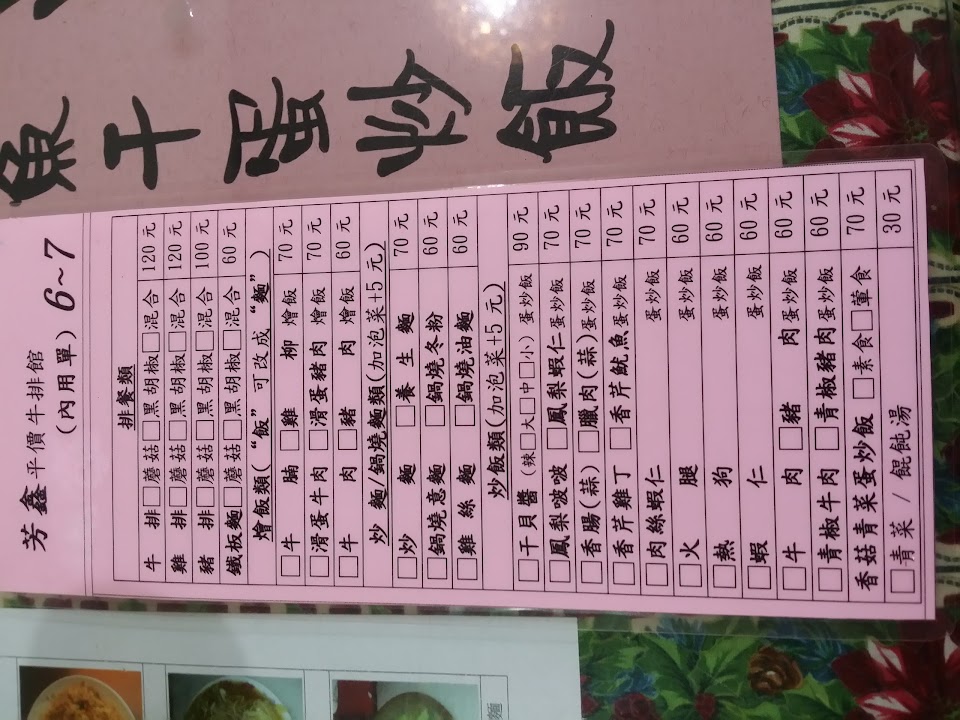 魚干蛋炒飯
芳鑫平價牛排館
(內用單) 6~7
排餐類
牛排□蘑菇□黑胡椒□混合 120元
雞排□蘑菇□黑胡椒□混合 120元
豬排□蘑菇□黑胡椒□混合 100元
鐵板麵□蘑菇□黑胡椒□混合 60元
燴飯類(“飯”可改成“麵”)
□牛腩□雞柳燴飯 70元
□滑蛋牛肉□滑蛋豬肉燴飯 70元
□牛肉□豬肉燴飯 60元
炒麵/鍋燒麵類(加泡菜+5元)
□炒麵□養生麵 70元
□鍋燒意麵□鍋燒冬粉 60元
□雞絲麵□鍋燒油麵 60元
炒飯類(加泡菜+5元)
□干貝醬(辣□大□中□小)蛋炒飯 90元
□鳳梨啵啵□鳳梨蝦仁蛋炒飯 70元
□香腸(蒜)□臘肉(蒜)蛋炒飯 70元
□香芹雞丁□香芹魷魚蛋炒飯 70元
□肉絲蝦仁蛋炒飯 70元
□火腿蛋炒飯 60元
□熱狗蛋炒飯 60元
□蝦仁蛋炒飯 60元
□牛肉□豬肉蛋炒飯 60元
□青椒牛肉□青椒豬肉蛋炒飯 60元
香菇青菜蛋炒飯□素食□葷食 70元
□青菜/餛飩湯 30元
麵